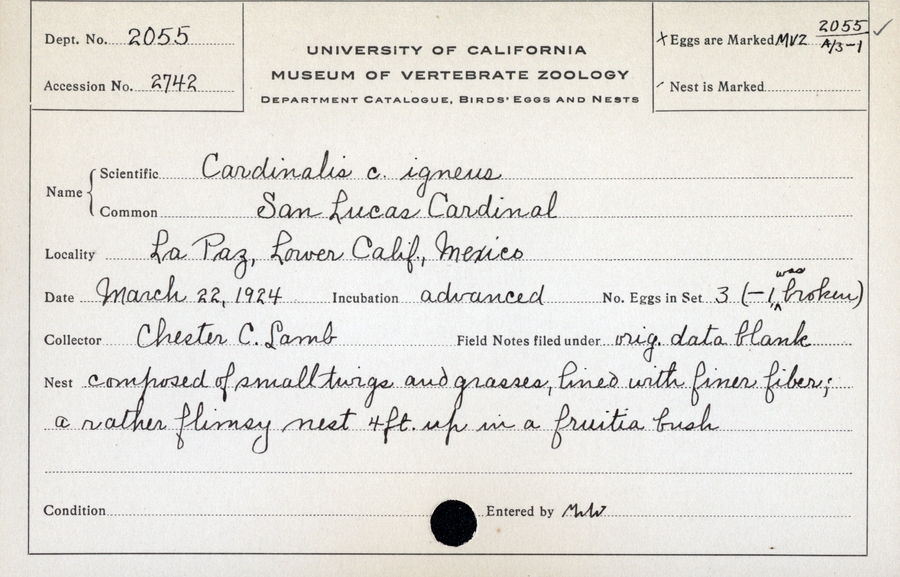 Dept. No. 2055
Accession No. 2742
UNIVERSITY OF CALIFORNIA
MUSEUM OF VERTEBRATE ZOOLOGY
DEPARTMENT CATALOGUE, BIRDS' EGGS AND NESTS
x Eggs are Marked MVZ 2055 ✓
A/3-1
Nest is Marked
Name
Scientific Cardinalis c. igneus
Common San Lucas Cardinal
Locality La Paz, Lower Calif., Mexico
Date March 22, 1924 Incubation advanced No. Eggs in Set 3 (-1, was broken)
Collector Chester C. Lamb Field Notes filed under orig. data blank
Nest composed of small twigs and grasses, lined with finer fiber;
a rather flimsy nest 4 ft. up in a fruitia bush
Condition Entered by